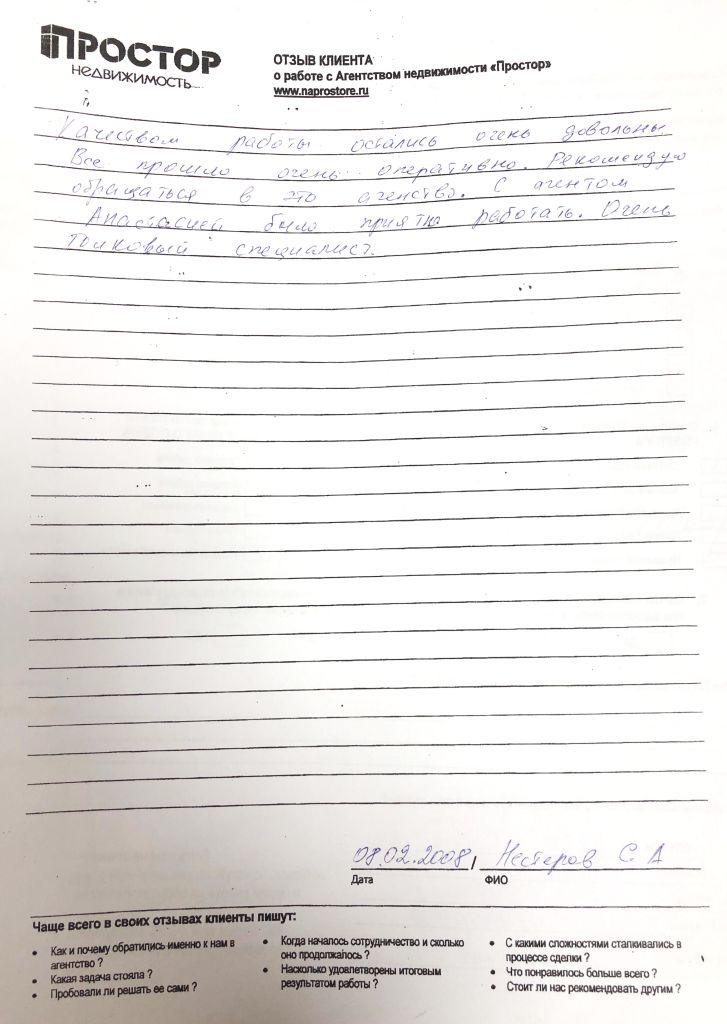 ПРОСТОР
НЕДВИЖИМОСТЬ
ОТЗЫВ КЛИЕНТА
о работе с Агентством недвижимости «Простор»
www.naprostore.ru
Качеством работы остались очень довольны
Все прошло очень оперативно. Рекомендую
обращаться в это агенство. С агентом
Анастасией было приятно работать. Очень
толковый специалист.
08.02.2008 / Нестеров С А
Дата ФИО
Чаще всего в своих отзывах клиенты пишут:
• Как и почему обратились именно к нам в
агентство ?
• Какая задача стояла ?
• Пробовали ли решать ее сами ?
• Когда началось сотрудничество и сколько
оно продолжалось ?
• Насколько удовлетворены итоговым
результатом работы ?
• С какими сложностями сталкивались в
процессе сделки ?
• Что понравилось больше всего ?
• Стоит ли нас рекомендовать другим ?